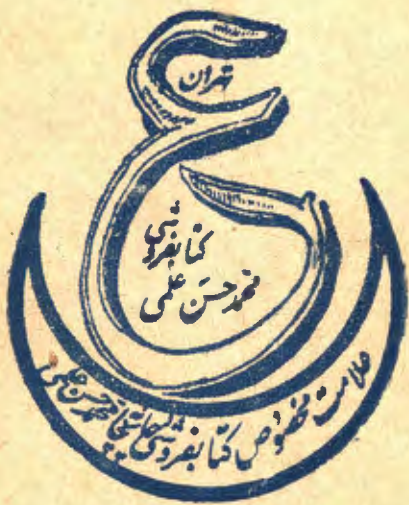 ع
تهران
کتابفروشی
محمد حسن علمی
علامت مخصوص کتابفروشی و چاپخانه محمد حسن علمی